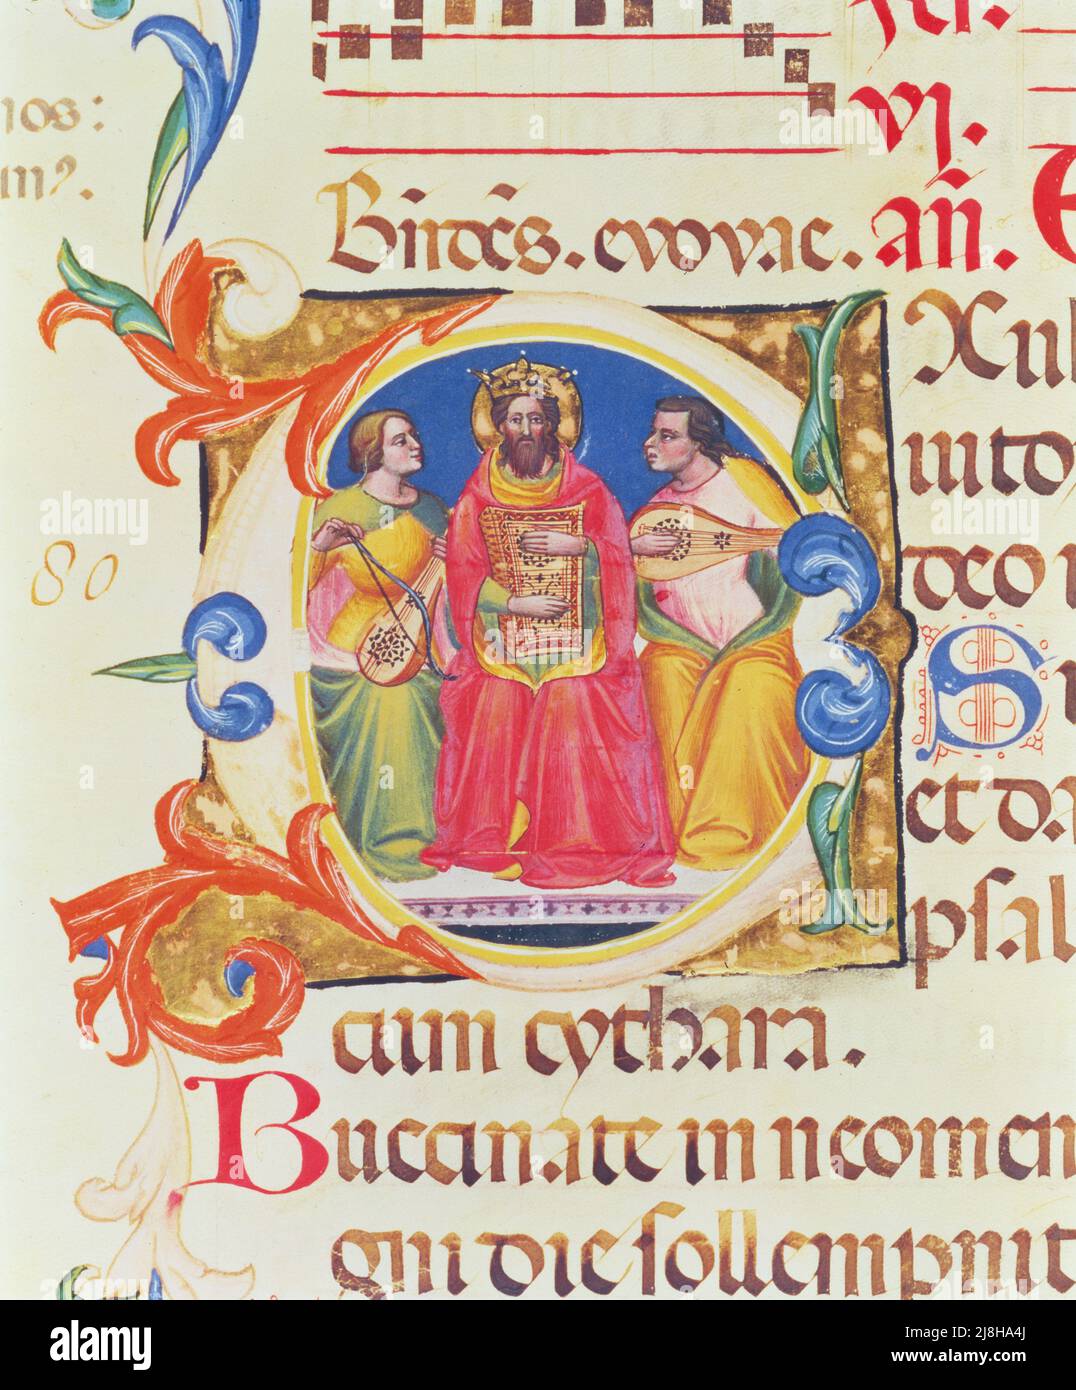 ios:
m?.
VI.
Bn̄dc̄s. evovae. an̄.
Xul
tuto
deo
S
et da
psal
cum cythara.
Buccinate in neomen
gni die sollempnit
80
alamy
Image ID: 2J8HA4J
www.alamy.com